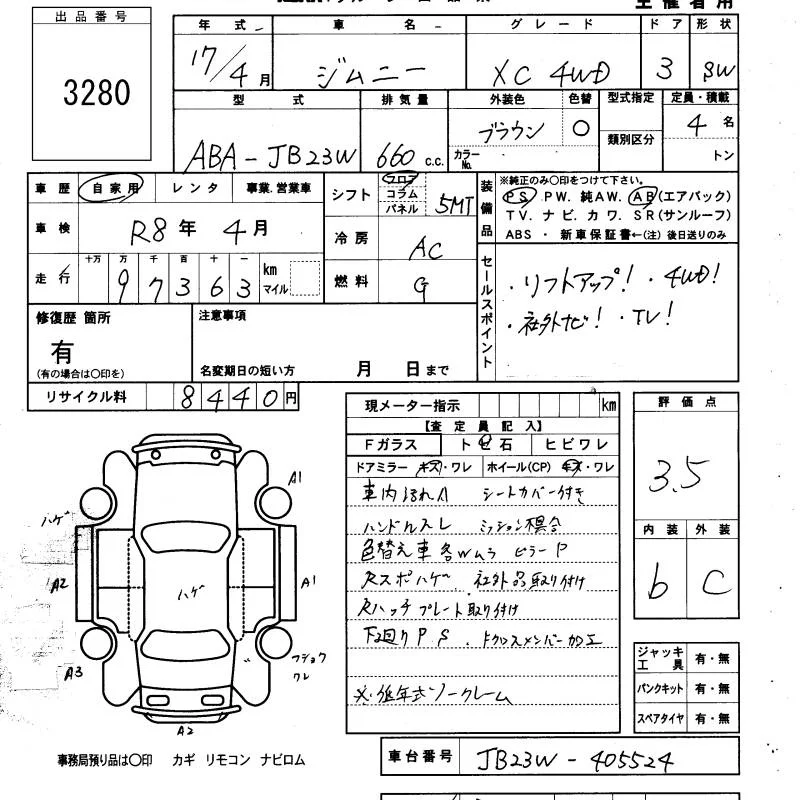 主催者用
出品番号
3280
年式 車名 グレード ドア 形状
17/4月 ジムニー XC 4WD 3 SW
型式 排気量 外装色 色替 型式指定 定員・積載
ABA-JB23W 660 c.c. ブラウン ○ 類別区分 4名
カラーNo. トン
車歴 自家用 レンタ 事業.営業車
シフト フロア コラム パネル 5MT
装備品
※純正のみ○印をつけて下さい。
PS PW. 純AW. AB(エアバック)
TV. ナビ. カワ. SR(サンルーフ)
ABS ・ 新車保証書←(注) 後日送りのみ
車検 R8年 4月
冷房 AC
走行 十万 万 千 百 十 一
97363 km マイル
燃料 G
セールスポイント
・リフトアップ! ・4WD!
・社外ナビ! ・TV!
修復歴 箇所
有
(有の場合は○印を)
注意事項
名変期日の短い方 月 日まで
リサイクル料 8440円
現メーター指示 km
【査定員記入】
Fガラス トビ石 ヒビワレ
ドアミラー キズ・ワレ ホイール(CP) キズ・ワレ
車内ヨゴレA シートカバー付き
ハンドルスレ ミッション損合
色替え車 各Wムラ ピラーP
Rスポハゲ 社外品取り付け
Rハッチ プレート取り付け
下廻りPS . クロスメンバー加工
評価点
3.5
内装 外装
b C
ジャッキ工具 有・無
パンクキット 有・無
スペアタイヤ 有・無
A1
ハゲ
A2
ハゲ
A1
A3
フショク
ワレ
A2
事務局預り品は○印 カギ リモコン ナビロム
車台番号 JB23W-405524